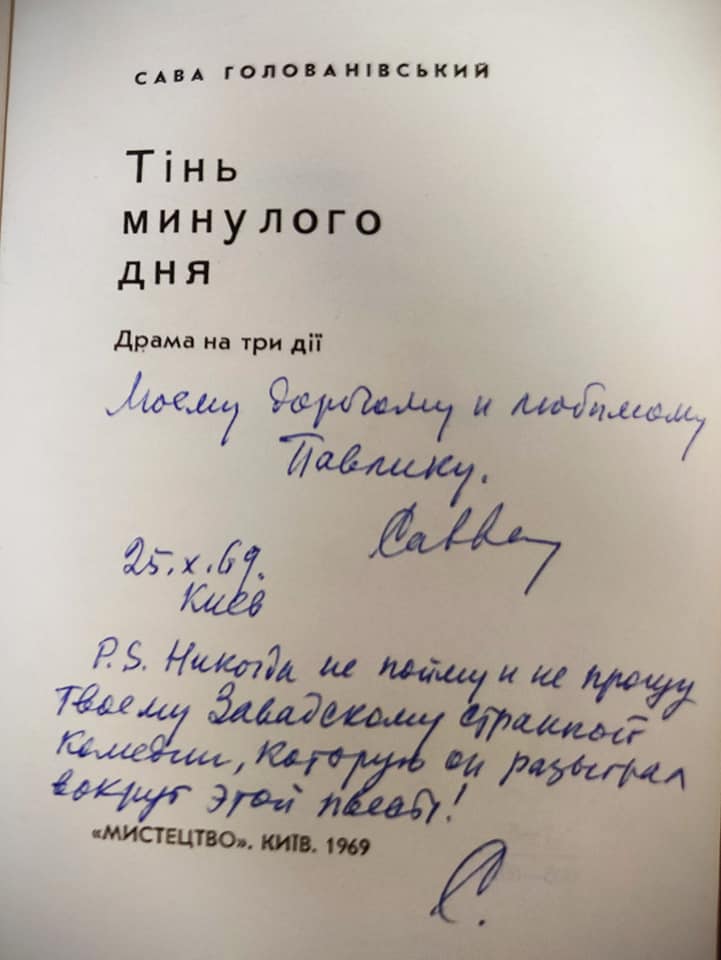 САВА ГОЛОВАНІВСЬКИЙ
Тінь
минулого
дня
Драма на три дії
Моему дорогому и любимому
Павлику.
Савва
25.X.69.
Киев
P.S. Никогда не пойму и не прощу
твоему Завадскому странной
комедии, которую он разыграл
вокруг этой пьесы!
«МИСТЕЦТВО». КИЇВ. 1969
С.